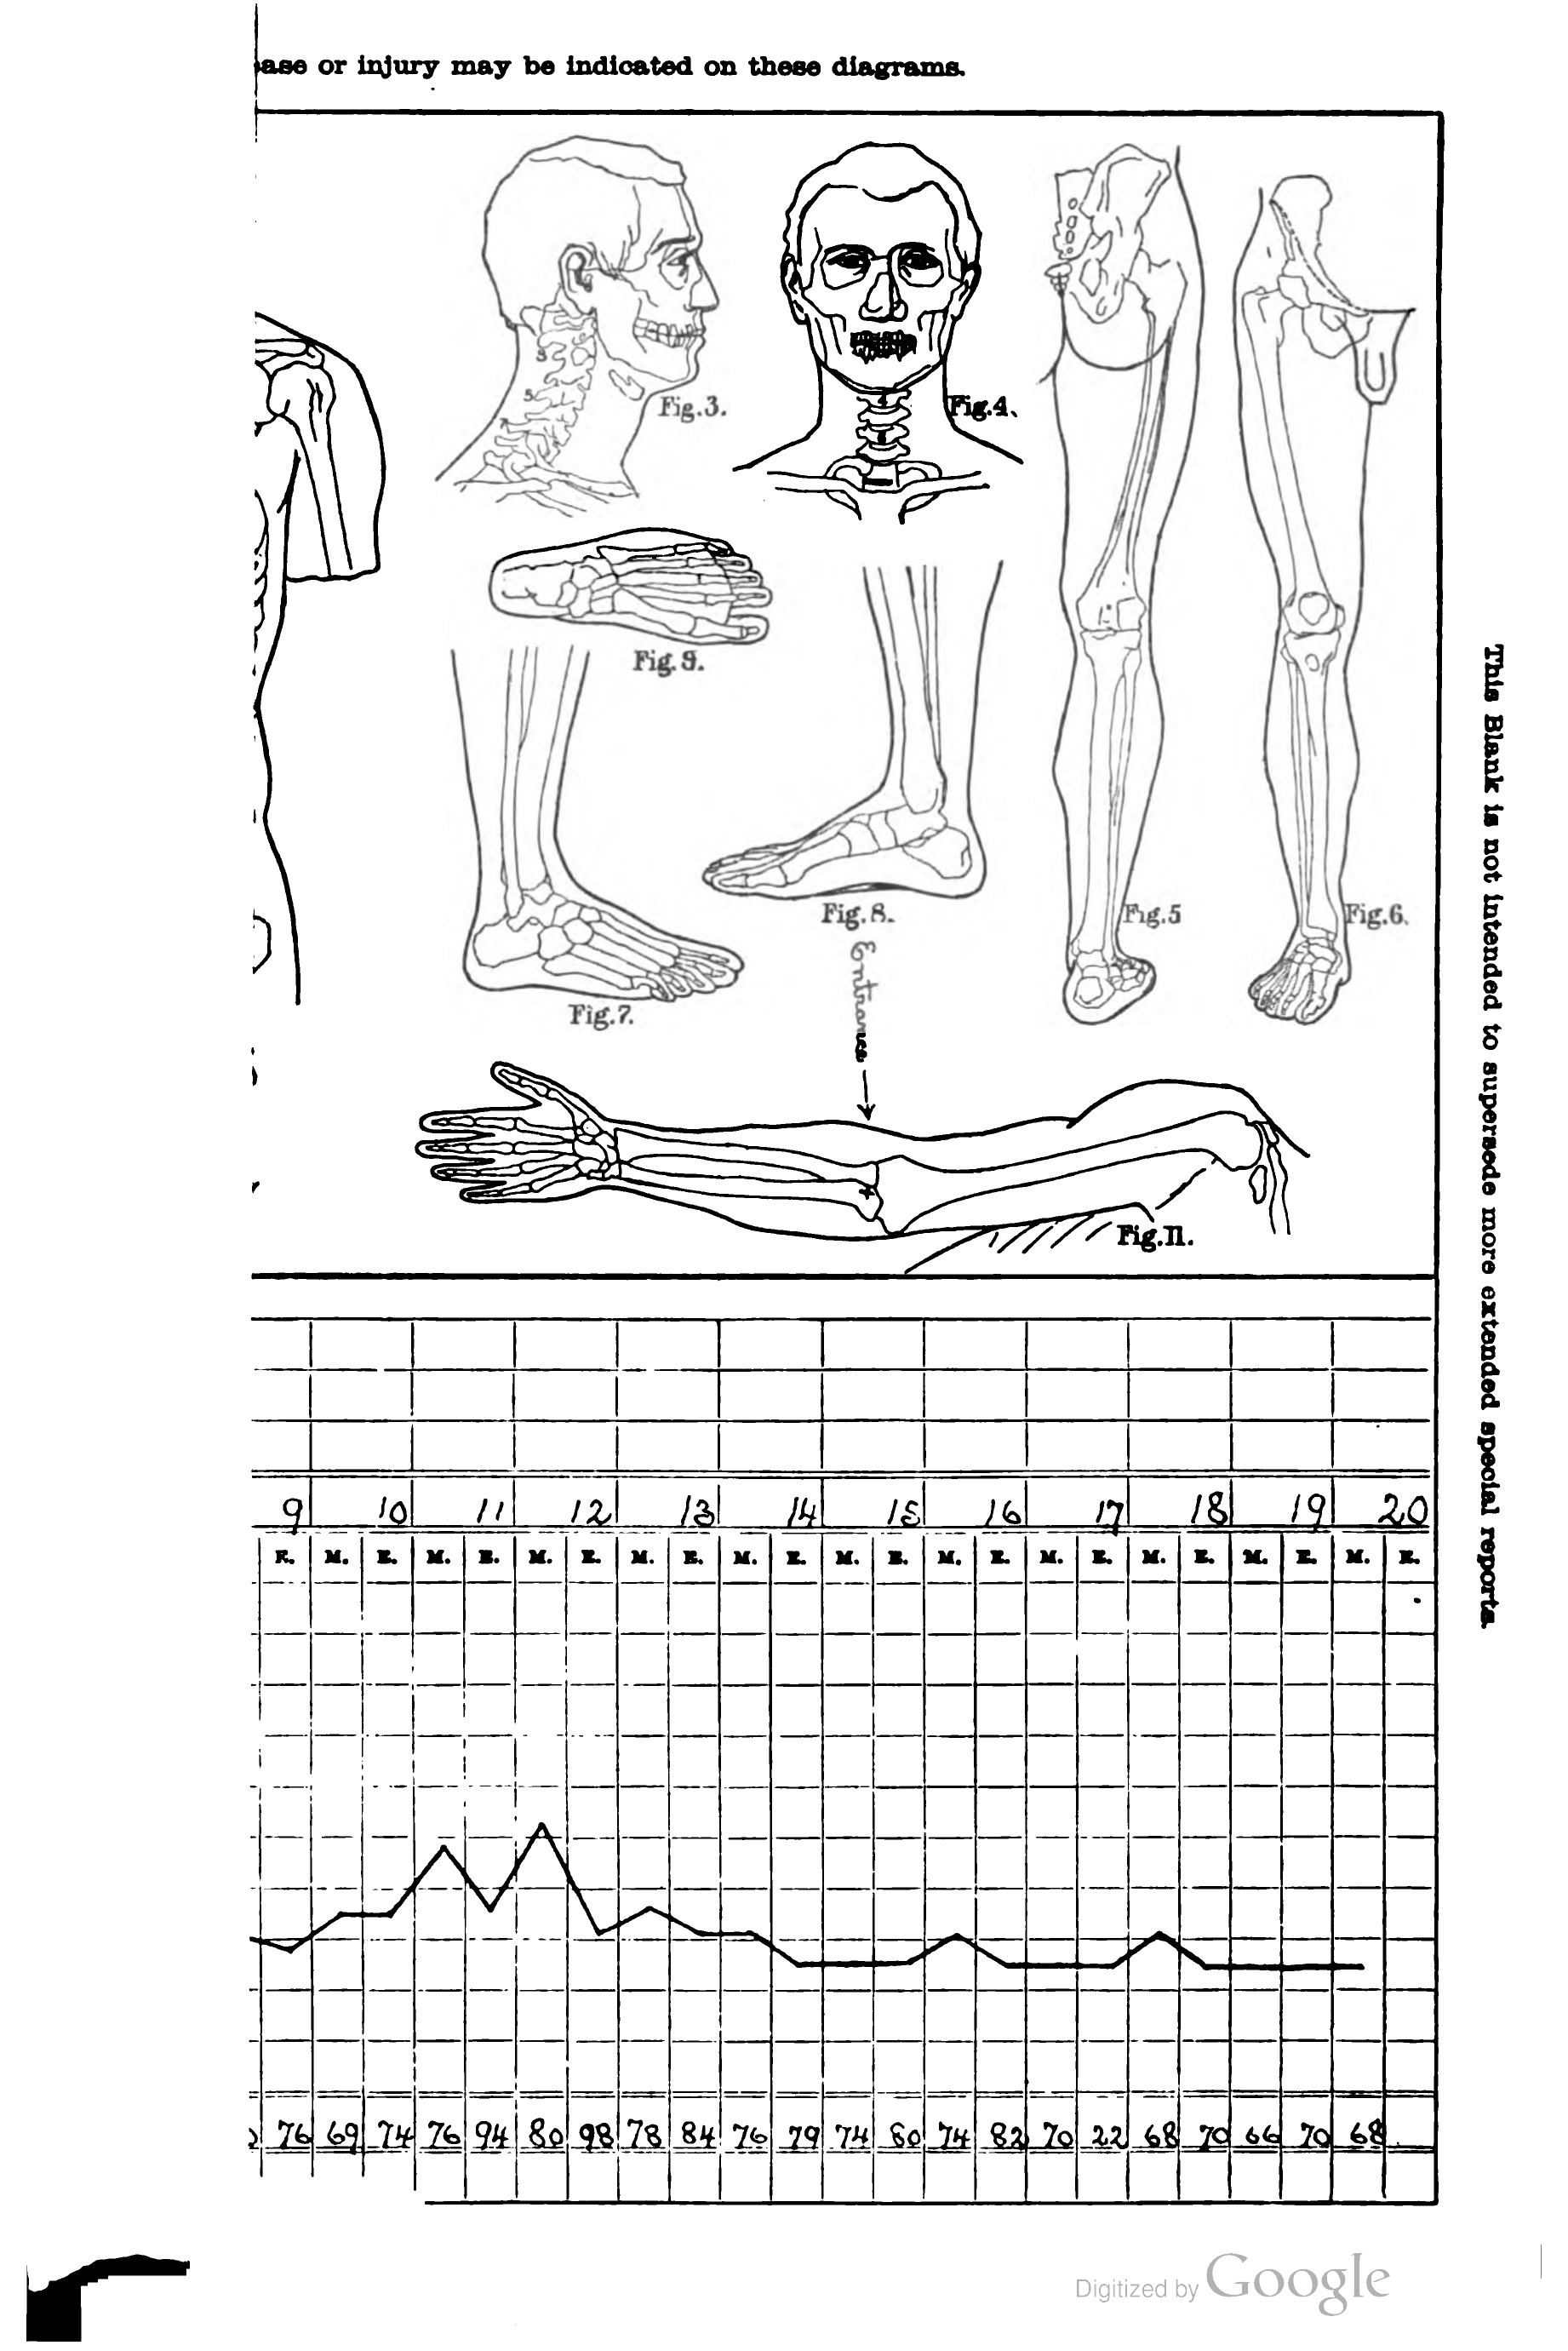 ase or injury may be indicated on these diagrams.
3
5
7
Fig.3.
4
6
Fig.4.
Fig.9.
Fig.8.
Fig.5
Fig.6.
Fig.7.
Entrance
Fig.11.
This Blank is not intended to supersede more extended special reports.
9 10 11 12 13 14 15 16 17 18 19 20
E. M. E. M. E. M. E. M. E. M. E. M. E. M. E. M. E. M. E. M. E. M. E.
76 69 74 76 94 80 98 78 84 76 79 74 80 74 82 70 22 68 70 66 70 68
Digitized by Google